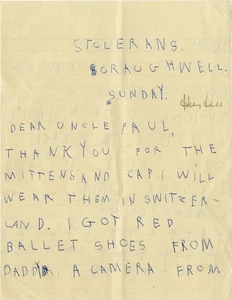 ST CLERANS.
CRAUGHWELL.
SUNDAY.
DEAR UNCLE PAUL,
THANK YOU FOR THE
MITTENS AND CAP. I WILL
WEAR THEM IN SWITZER-
LAND. I GOT RED
BALLET SHOES FROM
DADDY. A CAMERA FROM